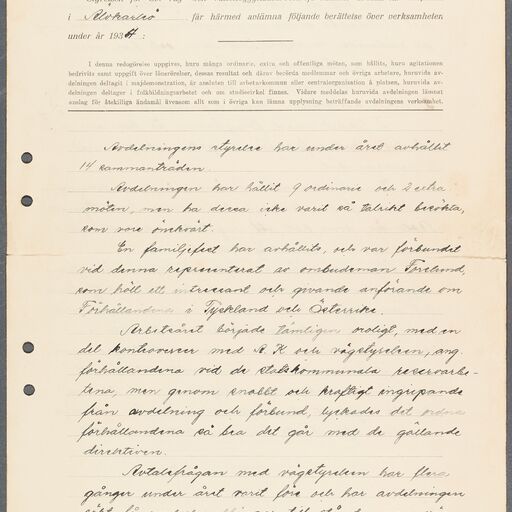 i Älvkarleö får härmed avlämna följande berättelse över verksamheten
under år 1934 :
I denna redogörelse uppgives, huru många ordinarie, extra och offentliga möten, som hållits, huru agitationen
bedrivits samt uppgift över lönerörelser, dessas resultat och därav berörda medlemmar och övriga arbetare, huruvida av-
delningen deltagit i majdemonstration, är ansluten till arbetarekommun eller centralorganisation på platsen, huruvida av-
delningen deltager i folkbildningsarbetet och om studiecirkel finnes. Vidare meddelas huruvida avdelningen lämnat
anslag för fackliga ändamål ävensom allt som i övriga kan lämna upplysning beträffande avdelningens verksamhet.
Avdelningens styrelse har under året avhållit
14 sammanträden.
Avdelningen har hållit 9 ordinarie och 2 extra
möten, men ha dessa icke varit så talrikt besökta,
som vore önskvärt.
En familjefest har avhållits, och var förbundet
vid denna representerat av ombudsman Forslund,
som höll ett intressant och givande anförande om
Förhållandena i Tyskland och Österrike.
Arbetsåret började tämligen oroligt, med en
del kontroverser med A. K och vägstyrelsen, ang.
förhållandena vid de statskommunala reservarbe-
tena, men genom snabbt och kraftigt ingripande
från avdelning och förbund, lyckades det ordna
förhållandena så bra det går med de gällande
direktiven.
Avtalsfrågan med vägstyrelsen har flera
gånger under året varit före och har avdelningen